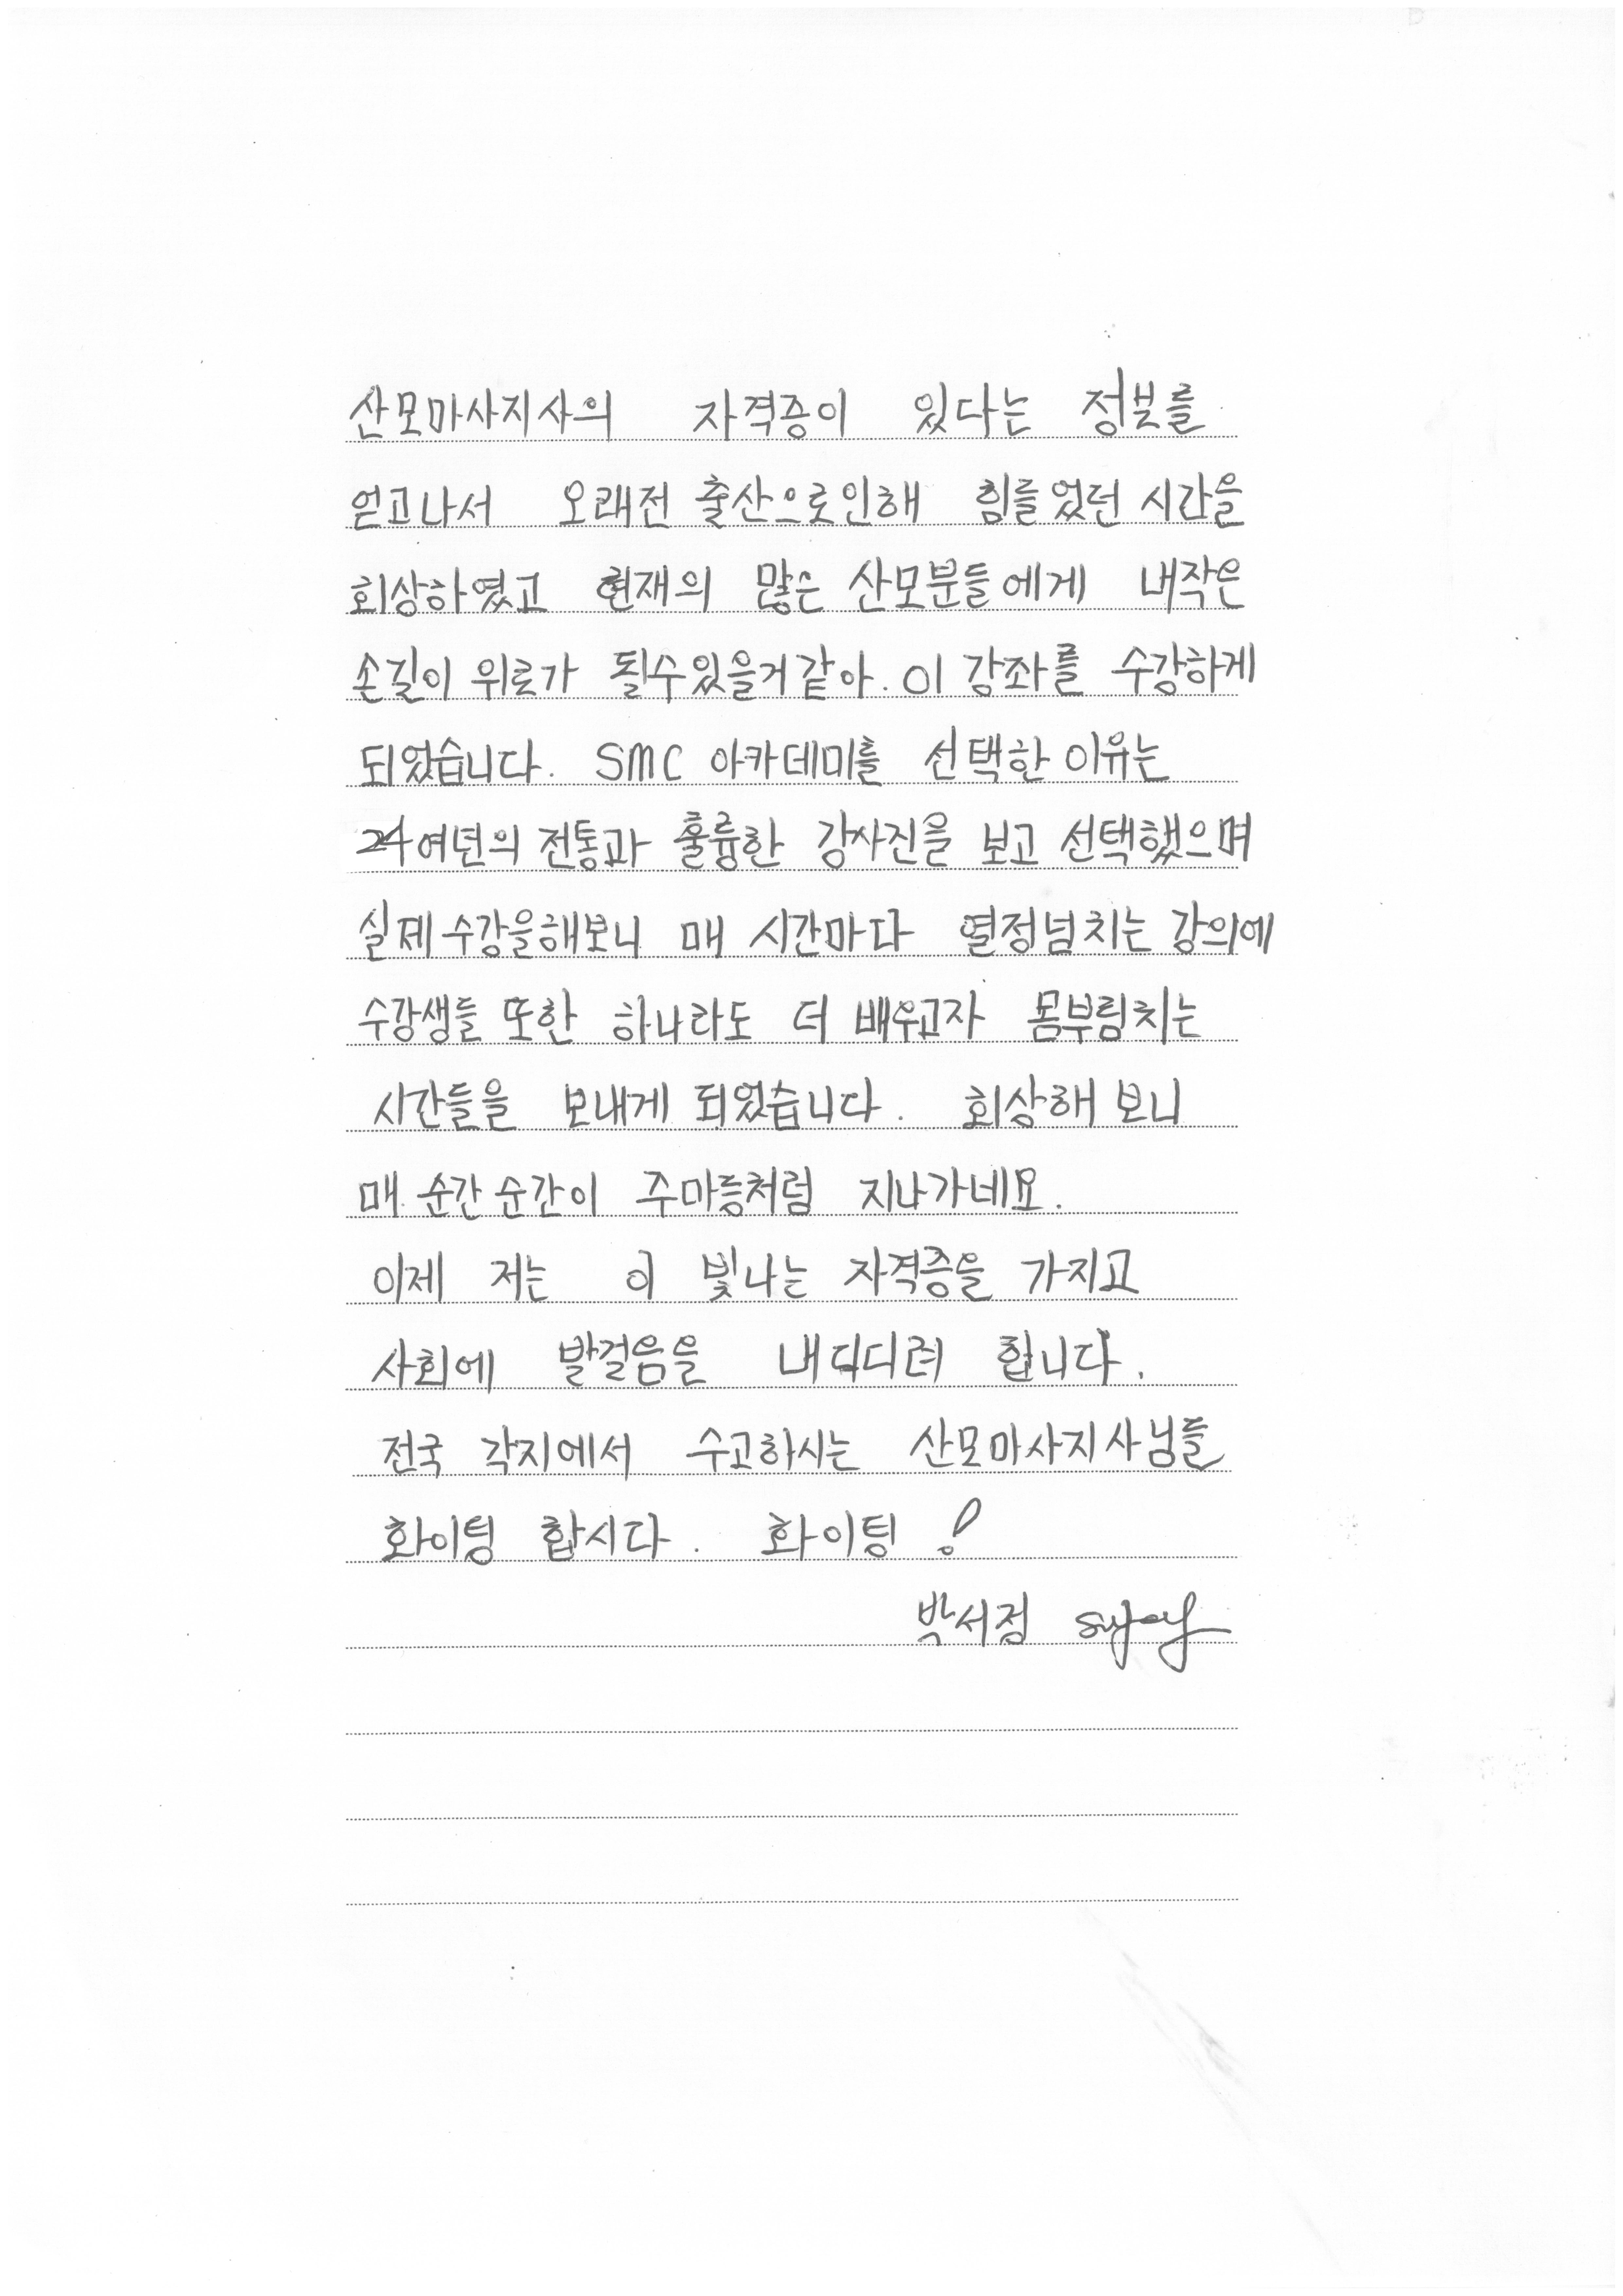 산모마사지사의 자격증이 있다는 정보를
얻고나서 오래전 출산으로인해 힘들었던 시간을
회상하였고 현재의 많은 산모분들에게 내작은
손길이 위로가 될수있을거같아. 이 강좌를 수강하게
되었습니다. SMC 아카데미를 선택한 이유는
24여년의 전통과 훌륭한 강사진을 보고 선택했으며
실제 수강을해보니 매 시간마다 열정넘치는 강의에
수강생들 또한 하나라도 더 배우고자 몸부림치는
시간들을 보내게 되었습니다. 회상해 보니
매 순간 순간이 주마등처럼 지나가네요.
이제 저는 이 빛나는 자격증을 가지고
사회에 발걸음을 내딛디려 합니다.
전국 각지에서 수고하시는 산모마사지사님들
화이팅 합시다. 화이팅!
박서정